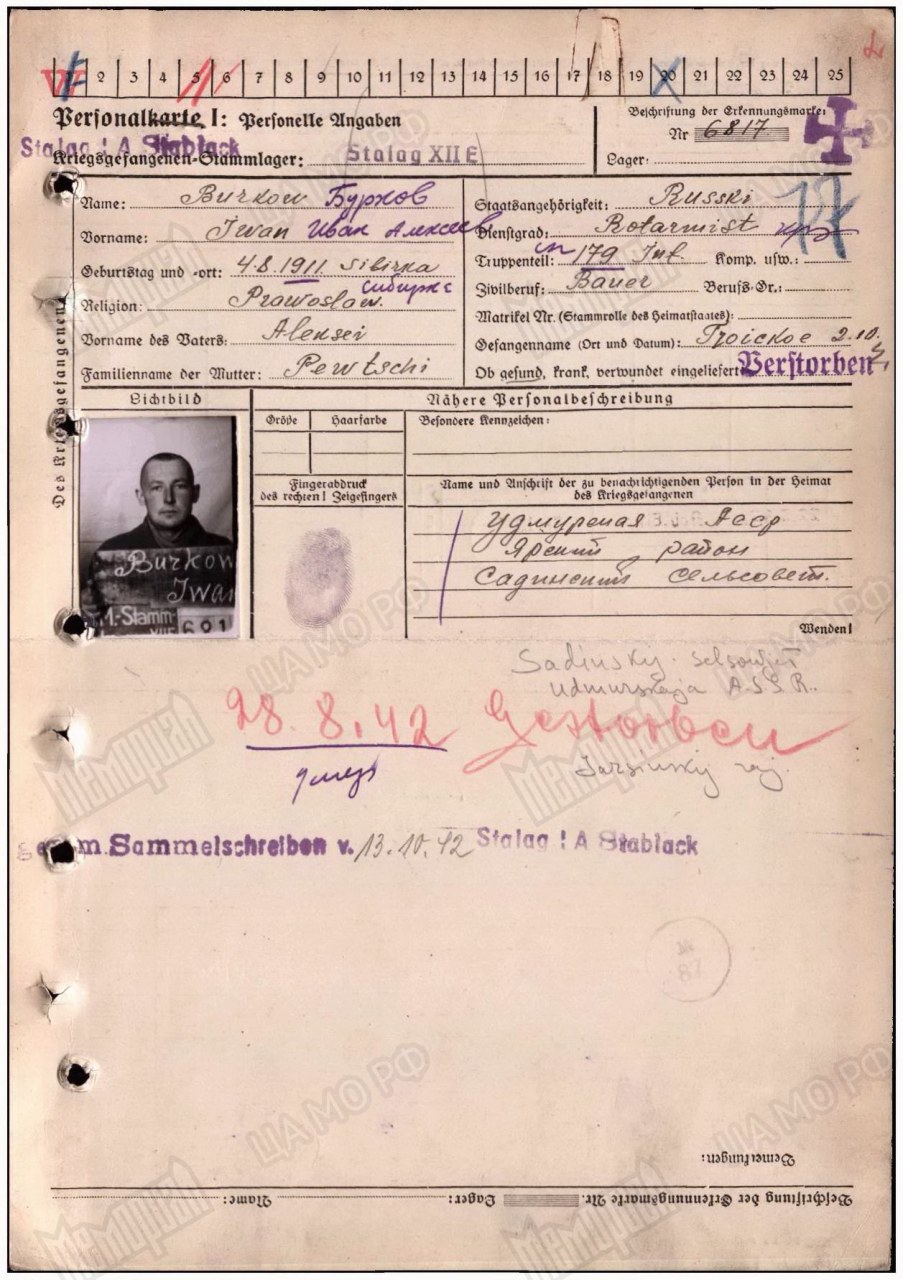 2 3 4 5 6 7 8 9 10 11 12 13 14 15 16 17 18 19 20 21 22 23 24 25
Personalkarte I: Personelle Angaben
Beschriftung der Erkennungsmarke:
Nr 6817
Stalag I A Stablack
Kriegsgefangenen-Stammlager: Stalag XII E
Lager:
Des Kriegsgefangenen
Name: Burkow Бурков
Vorname: Iwan Иван Алексеев
Geburtstag und -ort: 4.8.1911 Sibirka
Сибирка
Religion: Prawoslaw.
Vorname des Vaters: Aleksei
Familienname der Mutter: Pewtschi
Staatsangehörigkeit: Russki
Dienstgrad: Rotarmist
Truppenteil: 179 Inf. Komp. usw.:
Zivilberuf: Bauer Berufs-Gr.:
Matrikel Nr. (Stammrolle des Heimatstaates):
Gefangennahme (Ort und Datum): Troickoe 2.10.
Ob gesund, krank, verwundet eingeliefert:
Verstorben
Lichtbild
Nähere Personalbeschreibung
Größe Haarfarbe Besondere Kennzeichen:
Fingerabdruck
des rechten! Zeigefingers
Name und Anschrift der zu benachrichtigenden Person in der Heimat
des Kriegsgefangenen
Удмурская Асср
Ярский район
Садинский сельсовет.
Wenden!
Burkow
Iwan
M.-Stamm-
691
Sadinskij selsowjet
Udmurskaja A.S.S.R.
28.8.42 Gestorben
умер
Jarsinskij raj.
gem. Sammelschreiben v. 13.10.42 Stalag I A Stablack
Bemerkungen:
Beschriftung der Erkennungsmarke Nr. Lager: Name:
Мемориал
ЦА МО РФ